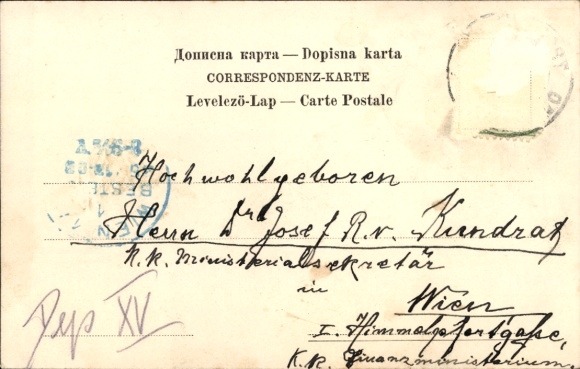 Дописна карта — Dopisna karta
CORRESPONDENZ-KARTE
Levelező-Lap — Carte Postale
Hochwohlgeboren
Herrn Dr Josef R.v. Kundrat
K.K. Ministerialsekretär
in
Wien
I. Himmelpfortgasse,
K.K. Finanzministerium.
Dep XV
WIEN
BESTE